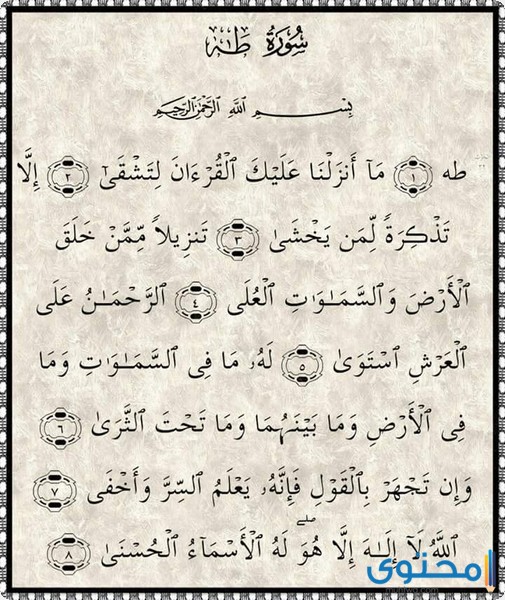 سُورَةُ طَهَ
بِسْمِ اللَّهِ الرَّحْمَٰنِ الرَّحِيمِ
طه ١ مَآ أَنزَلْنَا عَلَيْكَ ٱلْقُرْءَانَ لِتَشْقَىٰٓ ٢ إِلَّا
تَذْكِرَةً لِّمَن يَخْشَىٰ ٣ تَنزِيلاً مِّمَّنْ خَلَقَ
ٱلْأَرْضَ وَٱلسَّمَـٰوَٰتِ ٱلْعُلَى ٤ ٱلرَّحْمَـٰنُ عَلَى
ٱلْعَرْشِ ٱسْتَوَىٰ ٥ لَهُۥ مَا فِى ٱلسَّمَـٰوَٰتِ وَمَا
فِى ٱلْأَرْضِ وَمَا بَيْنَهُمَا وَمَا تَحْتَ ٱلثَّرَىٰ ٦
وَإِن تَجْهَرْ بِٱلْقَوْلِ فَإِنَّهُۥ يَعْلَمُ ٱلسِّرَّ وَأَخْفَى ٧
ٱللَّهُ لَآ إِلَـٰهَ إِلَّا هُوَ ۖ لَهُ ٱلْأَسْمَآءُ ٱلْحُسْنَىٰ ٨
محتوى